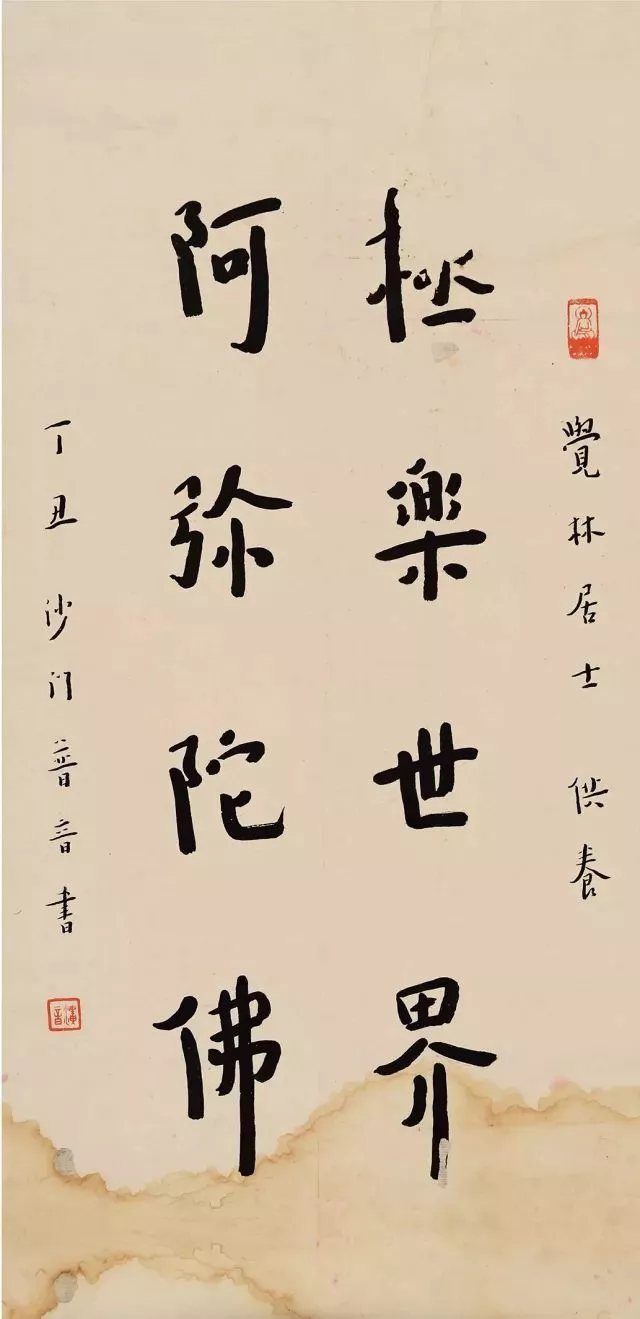 覺林居士 供養
極樂世界
阿弥陀佛
丁丑 沙门普音書